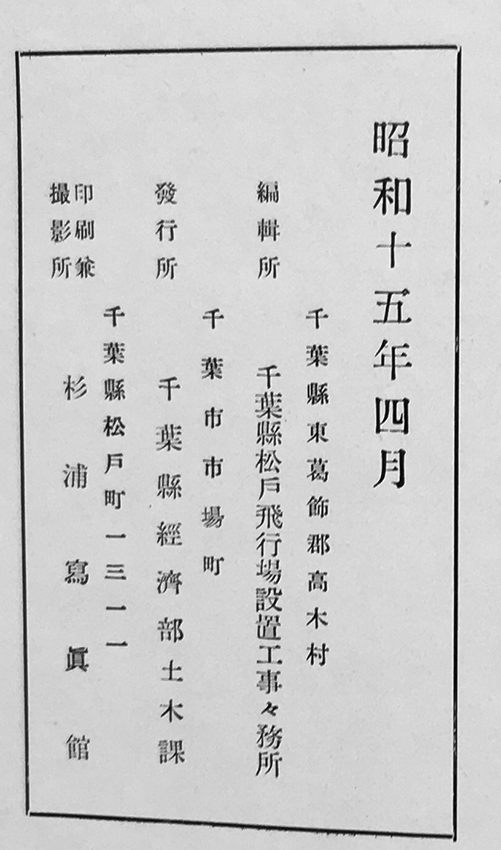 昭和十五年四月
千葉縣東葛飾郡高木村
編輯所　千葉縣松戶飛行場設置工事々務所
千葉市市場町
發行所　千葉縣經濟部土木課
千葉縣松戶町一三一一
印刷兼
撮影所　杉浦寫眞館